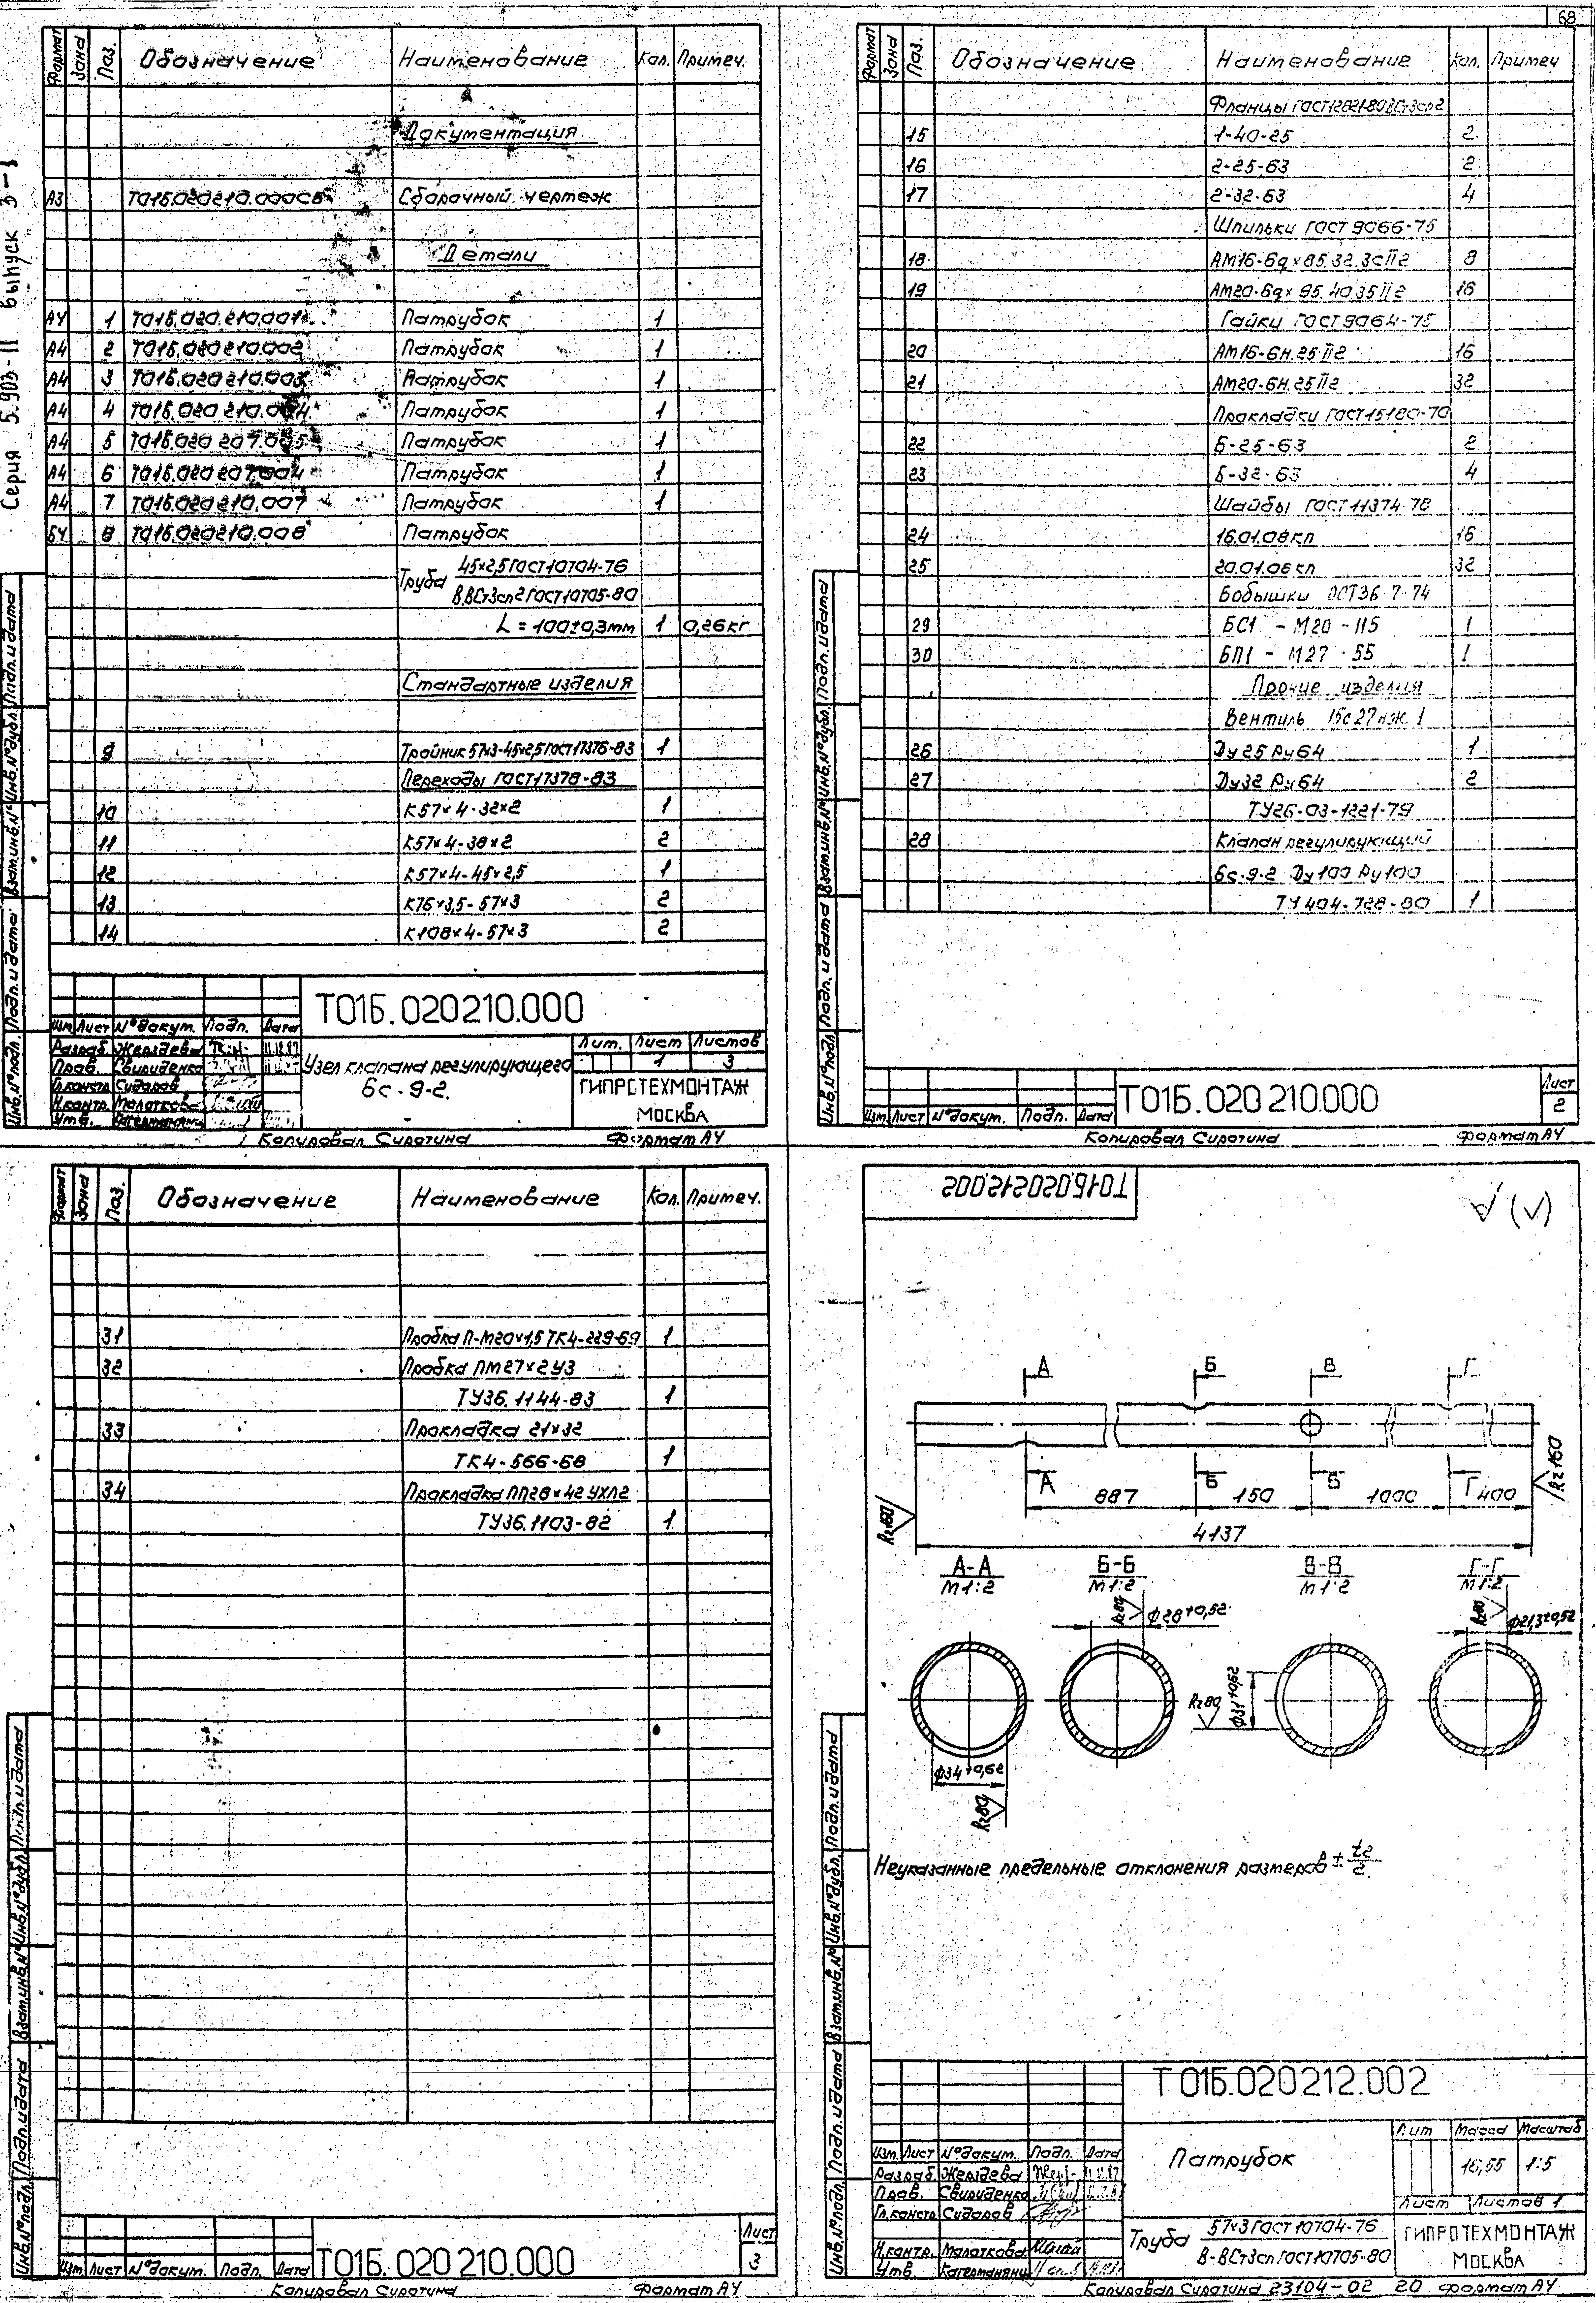 68
Серия 5.903-11 выпуск 3-1
Формат Зона Поз. Обозначение Наименование Кол. Примеч.
Документация
А3 Т01Б.020210.000СБ Сборочный чертеж
Детали
А4 1 Т01Б.020.210.001 Патрубок 1
А4 2 Т01Б.020210.002 Патрубок 1
А4 3 Т01Б.020210.003 Патрубок 1
А4 4 Т01Б.020 210.004 Патрубок 1
А4 5 Т01Б.020 207.005 Патрубок 1
А4 6 Т01Б.020207.004 Патрубок 1
А4 7 Т01Б.020210.007 Патрубок 1
БЧ 8 Т01Б.020210.008 Патрубок
Труба 45×2,5 ГОСТ10704-76
В.ВСт3сп2 ГОСТ10705-80
L = 100±0,3мм 1 0,26кг
Стандартные изделия
9 Тройник 57×3-45×2,5 ГОСТ17376-83 1
Переходы ГОСТ17378-83
10 К57×4-32×2 1
11 К57×4-38×2 2
12 К57×4-45×2,5 1
13 К76×3,5-57×3 2
14 К108×4-57×3 2
Т01Б.020210.000
Изм. Лист №докум. Подп. Дата
Разраб. Жерздева
Пров. Свириденко
Гл.констр. Сидоров
Н.контр. Молоткова
Утв.
Узел клапана регулирующего
6с-9-2.
Лит. Лист Листов
1 3
ГИПРОТЕХМОНТАЖ
МОСКВА
Инв.№подл. Подп.и дата Взам.инв.№ Инв.№дубл. Подп.и дата
Копировал Сиротина Формат А4
Формат Зона Поз. Обозначение Наименование Кол. Примеч
Фланцы ГОСТ12821-80
15 1-40-25 2
16 2-25-63 2
17 2-32-63 4
Шпильки ГОСТ 9066-75
18 АМ16-6g×85.32.35 II 2 8
19 АМ20-6g×95.40.35 II 2 16
Гайки ГОСТ9064-75
20 АМ16-6Н.25 II 2 16
21 АМ20-6Н.25 II 2 32
Прокладки ГОСТ15180-70
22 Б-25-63 2
23 Б-32-63 4
Шайбы ГОСТ11374-78
24 16.01.08кп 16
25 20.01.08кп 32
Бобышки ОСТ36-7-74
29 БС1 - М20 - 115 1
30 БП1 - М27 - 55 1
Прочие изделия
Вентиль 15с27нж.1
26 Ду25 Ру64 1
27 Ду32 Ру64 2
ТУ26-03-1221-79
28 Клапан регулирующий
6с-9-2 Ду100 Ру100
ТУ404-728-80 1
Изм. Лист №докум. Подп. Дата
Т01Б.020 210.000
Лист
2
Инв.№подл. Подп.и дата Взам.инв.№ Инв.№дубл. Подп.и дата
Копировал Сиротина Формат А4
Формат Зона Поз. Обозначение Наименование Кол. Примеч.
31 Пробка П-М20×1,5 ТК4-229-69 1
32 Пробка ПМ27×2У3
ТУ36.1144-83 1
33 Прокладка 21×32
ТК4-566-68 1
34 Прокладка ПП28×42 УХЛ2
ТУ36.1103-82 1
Изм. Лист №докум. Подп. Дата
Т01Б.020 210.000
Лист
3
Инв.№подл. Подп.и дата Взам.инв.№ Инв.№дубл. Подп.и дата
Копировал Сиротина Формат А4
Т01Б.020212.002
(√)
А Б В Г
А Б В Г
887 150 1000 400
4137
Rz160 Rz160
А-А Б-Б В-В Г-Г
М1:2 М1:2 М1:2 М1:2
Rz80 ϕ28+0,52 Rz80 ϕ21,3+0,52
Rz80 ϕ31+0,62
ϕ34+0,62
Rz80
Неуказанные предельные отклонения размеров ± t2/2
Т01Б.020212.002
Изм. Лист №докум. Подп. Дата
Разраб. Жерздева
Пров. Свириденко
Гл.констр. Сидоров
Н.контр. Молоткова
Утв.
Патрубок
Лит Масса Масштаб
16,55 1:5
Лист Листов 1
Труба 57×3 ГОСТ 10704-76
В-ВСт3сп ГОСТ10705-80
ГИПРОТЕХМОНТАЖ
МОСКВА
Инв.№подл. Подп.и дата Взам.инв.№ Инв.№дубл. Подп.и дата
Копировал Сиротина 23104-02 20 Формат А4